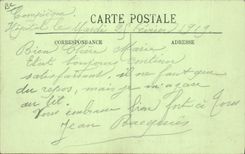 Compiègne
CARTE POSTALE
Hôpital le Mardi 25 février 1919
CORRESPONDANCE
ADRESSE
Bien Chère Marie
Etat toujours
satisfaisant, il ne faut que
du repos, mais je m'
au lit.
Vous embrasse bien fort à tous
Jean